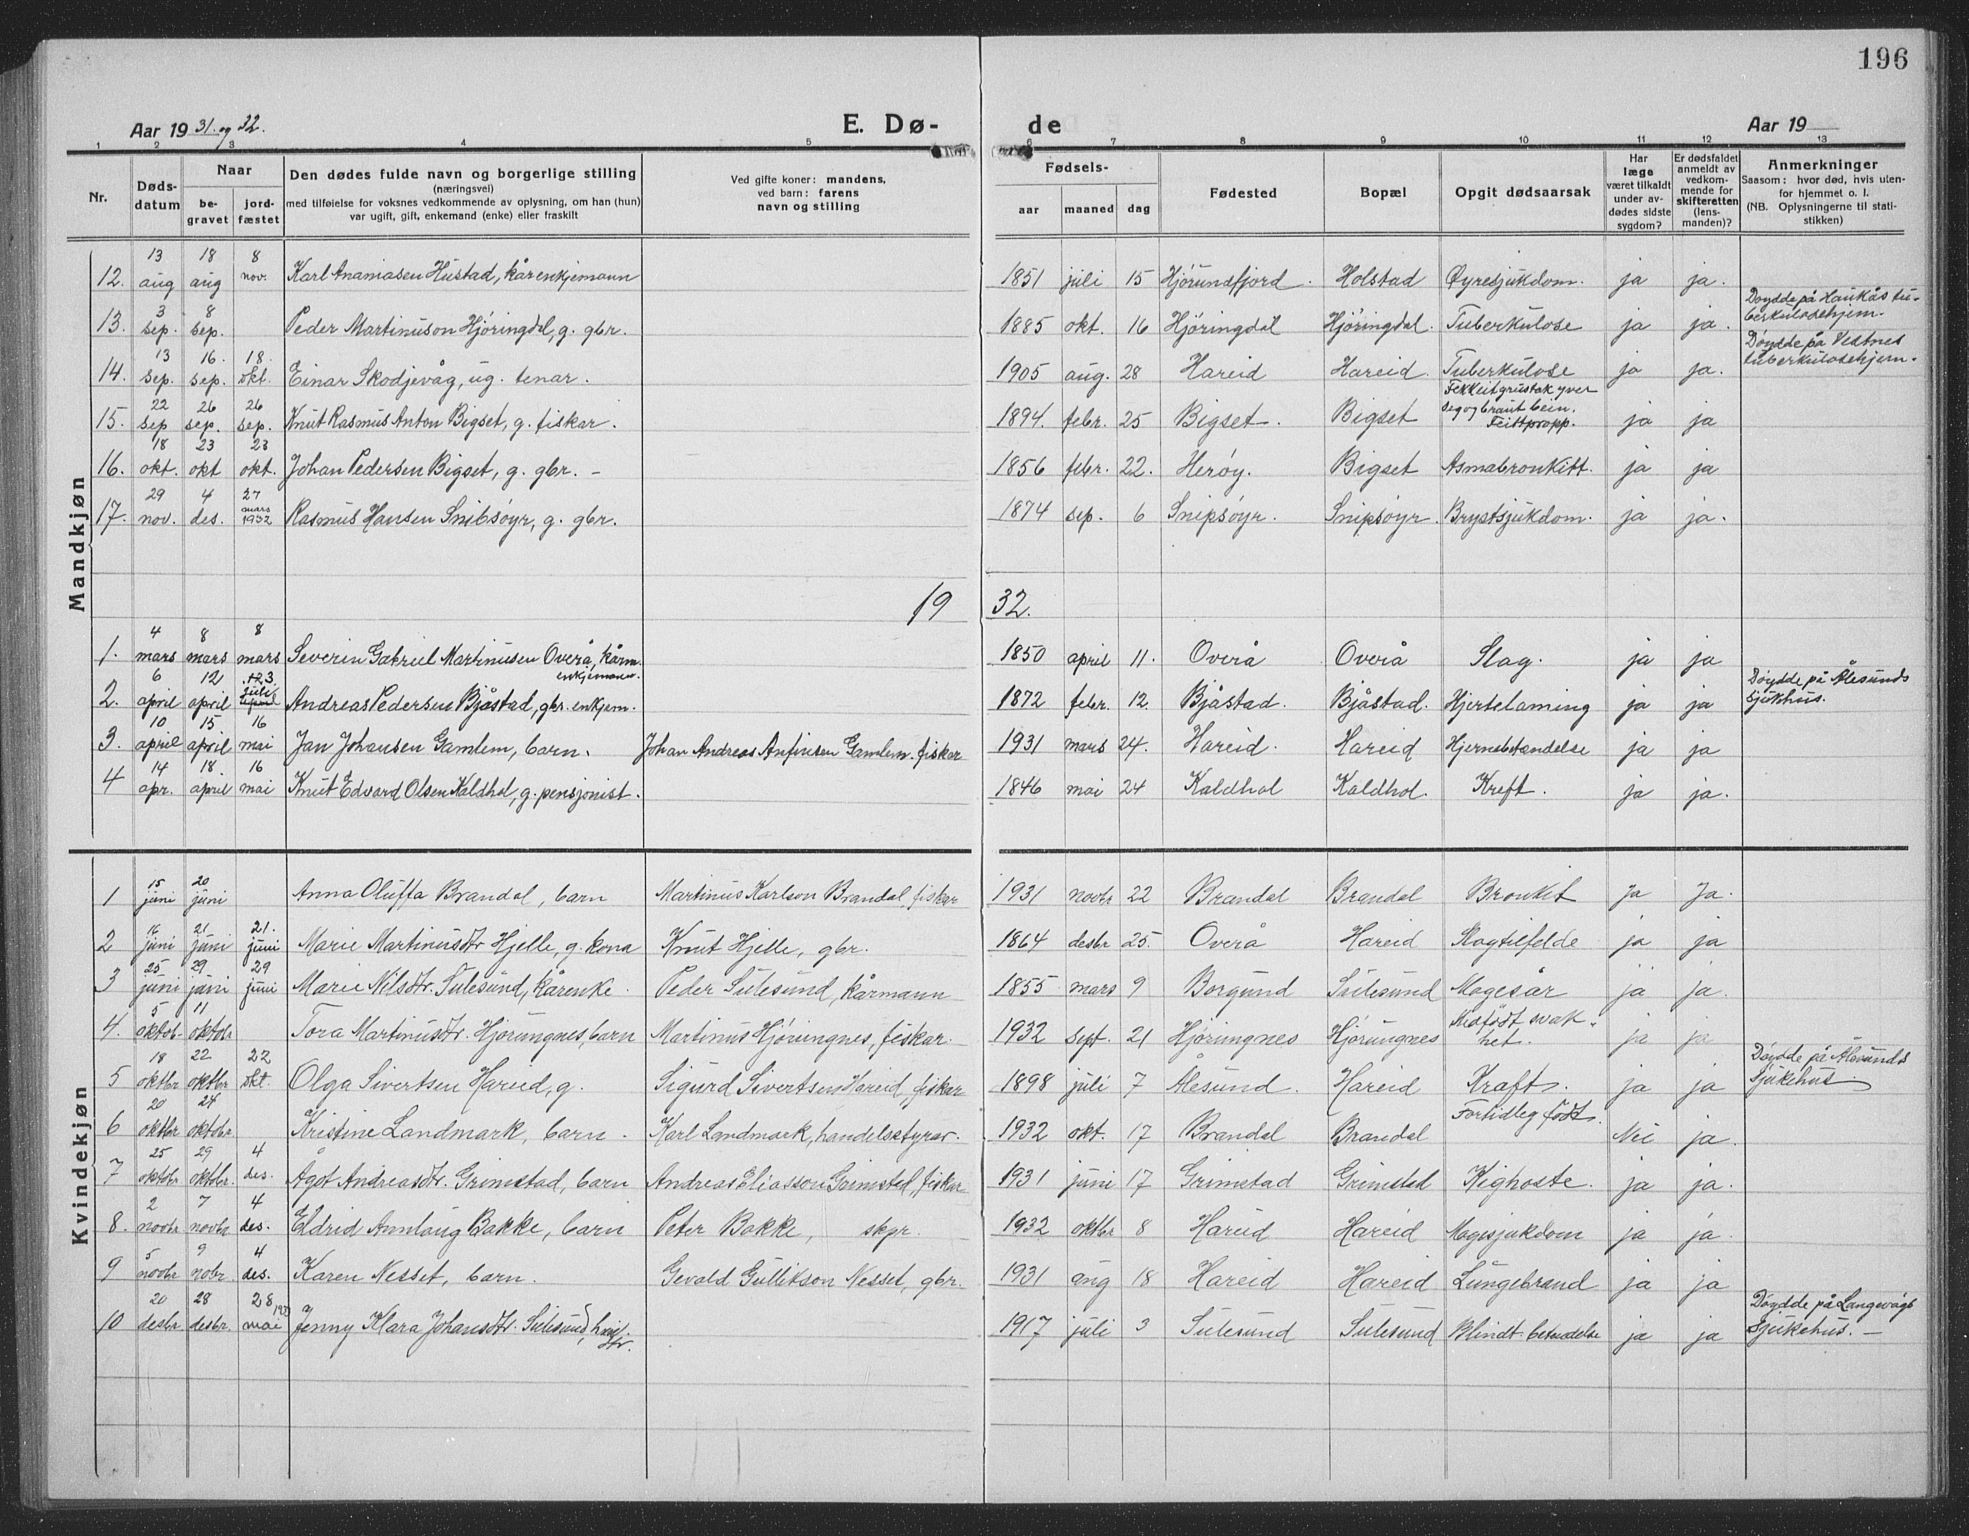 196
Aar 19 31. og 32.
E. Dø-
de
Aar 19
1 2 3 4 5 6 7 8 9 10 11 12 13
Nr.
Døds-
datum
Naar
be-
gravet
jord-
fæstet
Den dødes fulde navn og borgerlige stilling
(næringsvei)
med tilføielse for voksnes vedkommende av oplysning, om han (hun)
var ugift, gift, enkemand (enke) eller fraskilt
Ved gifte koner: mandens,
ved barn: farens
navn og stilling
Fødsels-
aar maaned dag
Fødested
Bopæl
Opgit dødsaarsak
Har
læge
været tilkaldt
under av-
dødes sidste
sygdom?
Er dødsfaldet
anmeldt av
vedkom-
mende for
skifteretten
(lens-
manden)?
Anmerkninger
Saasom: hvor død, hvis uten-
for hjemmet o. l.
(NB. Oplysningerne til stati-
stikken)
Mandkjøn
12. 13 aug 18 aug 8 nov. Karl Ananiasen Hustad, kårenkjemann 1851 juli 15 Hjørundfjord. Holstad Øyresjukdom. ja ja.
13. 3 sep. 8 sep. Peder Martinuson Hjøringdal, g. gbr. 1885 okt. 16 Hjøringdal Hjøringdal. Tuberkulose ja ja. Døydde på Haukås tu-
berkulosehjem.
14. 13 sep. 16. sep. 18. okt. Einar Skodjevåg, ug. tenar. 1905 aug. 28 Hareid Hareid. Tuberkulose ja ja. Døydde på Vestnes
tuberkulosehjem.
15. 22 sep 26 sep. 26 sep. Knut Rasmus Anton Bigset, g. fiskar. 1894. febr. 25 Bigset. Bigset Fekk eit grustak yver
seg og braut bein.
Feittpropp. ja ja
16. 18 okt. 23 okt 23 okt. Johan Pedersen Bigset, g. gbr. - 1856 febr. 22. Herøy. Bigset Asmabronkitt. ja ja
17. 29 nov. 4 des. 27 mars 1932 Rasmus Hansen Snibsøyr, g. gbr. 1874 sep. 6 Snipsøyr. Snipsøyr. Brystsjukdom. ja ja.
19 32.
1. 4 mars 8 mars 8 mars Severin Gabriel Martinusen Overå, kårm.
enkjemann. 1850 april 11. Overå Overå Slag. ja ja
2. 6 april 12 april 3. juli Andreas Pedersen Bjåstad, gbr. enkjem. 1872 febr. 12. Bjåstad. Bjåstad. Hjertelaming ja ja Døydde på Ålesunds
sjukhus.
3. 10 april 15 april 16 mai Jan Johansen Gamlem, barn. Johan Andreas Anfinsen Gamlem. fiskar 1931 mars 24. Hareid. Hareid Hjernebetendelse ja ja
4 14 apr. 18. april 16 mai Knut Edvard Olsen Kaldhol, g. pensjonist. 1846 mai 24 Kaldhol Kaldhol. Kreft. ja ja.
Kvindekjøn
1 15 juni 20 juni Anna Oluffa Brandal, barn Martinus Karlson Brandal, fiskar 1931 novbr 22 Brandal Brandal Bronkit Ja Ja.
2 16 juni 21 juni 21. juni Marie Martinusdtr Hjelle, g. kona Knut Hjelle, gbr. 1864 desbr 25. Overå Hareid Slagtilfelde ja ja
3 25 juni 29 juni 29 juni Marie Nilsdtr. Sulesund, kårenke. Peder Sulesund, kårmann 1855 mars 9 Borgund Sulesund Magesår ja ja.
4. 5 oktob. 11 oktobr Tora Martinusdtr. Hjørungnes, barn Martinus Hjørungnes, fiskar. 1932 sept. 21 Hjørungnes Hjørungnes Medfødt svak-
het. ja ja
5 18 oktbr 22 oktbr 22 okt. Olga Sivertsen Hareid, g. Sigurd Sivertsen Hareid, fiskar 1898 juli 7 Ålesund. Hareid Kraft. ja ja Døydde på Ålesunds
Sjukehus.
6 20 oktbr 24 oktobr Kristine Landmark, barn. Karl Landmark, handelsstyrar. 1932 okt. 17 Brandal Brandal Fortidleg født. Nei ja.
7 25 oktobr 29 oktbr. 4 des. Ågot Andreasdtr. Grimstad, barn Andreas Eliasson Grimstad, fiskar 1931 juni 17 Grimstad Grimstad Kighoste. ja ja.
8. 2 novbr 7 novbr 4 des. Eldrid Annlaug Bakke, barn Peter Bakke, skpr. 1932 oktbr 8 Hareid Hareid Magesjukdom ja ja.
9 5 novbr 9 nobr. 4 des. Karen Nesset, barn. Gevald Gullikson Nesset, gbr. 1931 aug 18 Hareid Hareid Lungebrand ja ja
10 20 desbr 28 desbr. 28 mai Jenny Klara Johansdtr. Sulesund, 1917 juli 3 Sulesund Sulesund Blindt. betendelse ja ja Døydde på Langevågs
Sjukehus. -